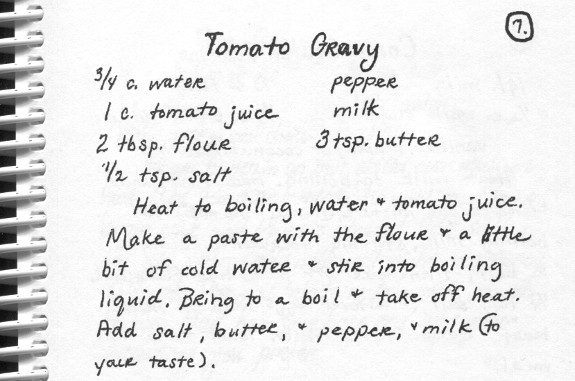 7.
Tomato Gravy
3/4 c. water pepper
1 c. tomato juice milk
2 tbsp. flour 3 tsp. butter
1/2 tsp. salt
Heat to boiling, water + tomato juice.
Make a paste with the flour + a little
bit of cold water + stir into boiling
liquid. Bring to a boil + take off heat.
Add salt, butter, + pepper, + milk (to
your taste).